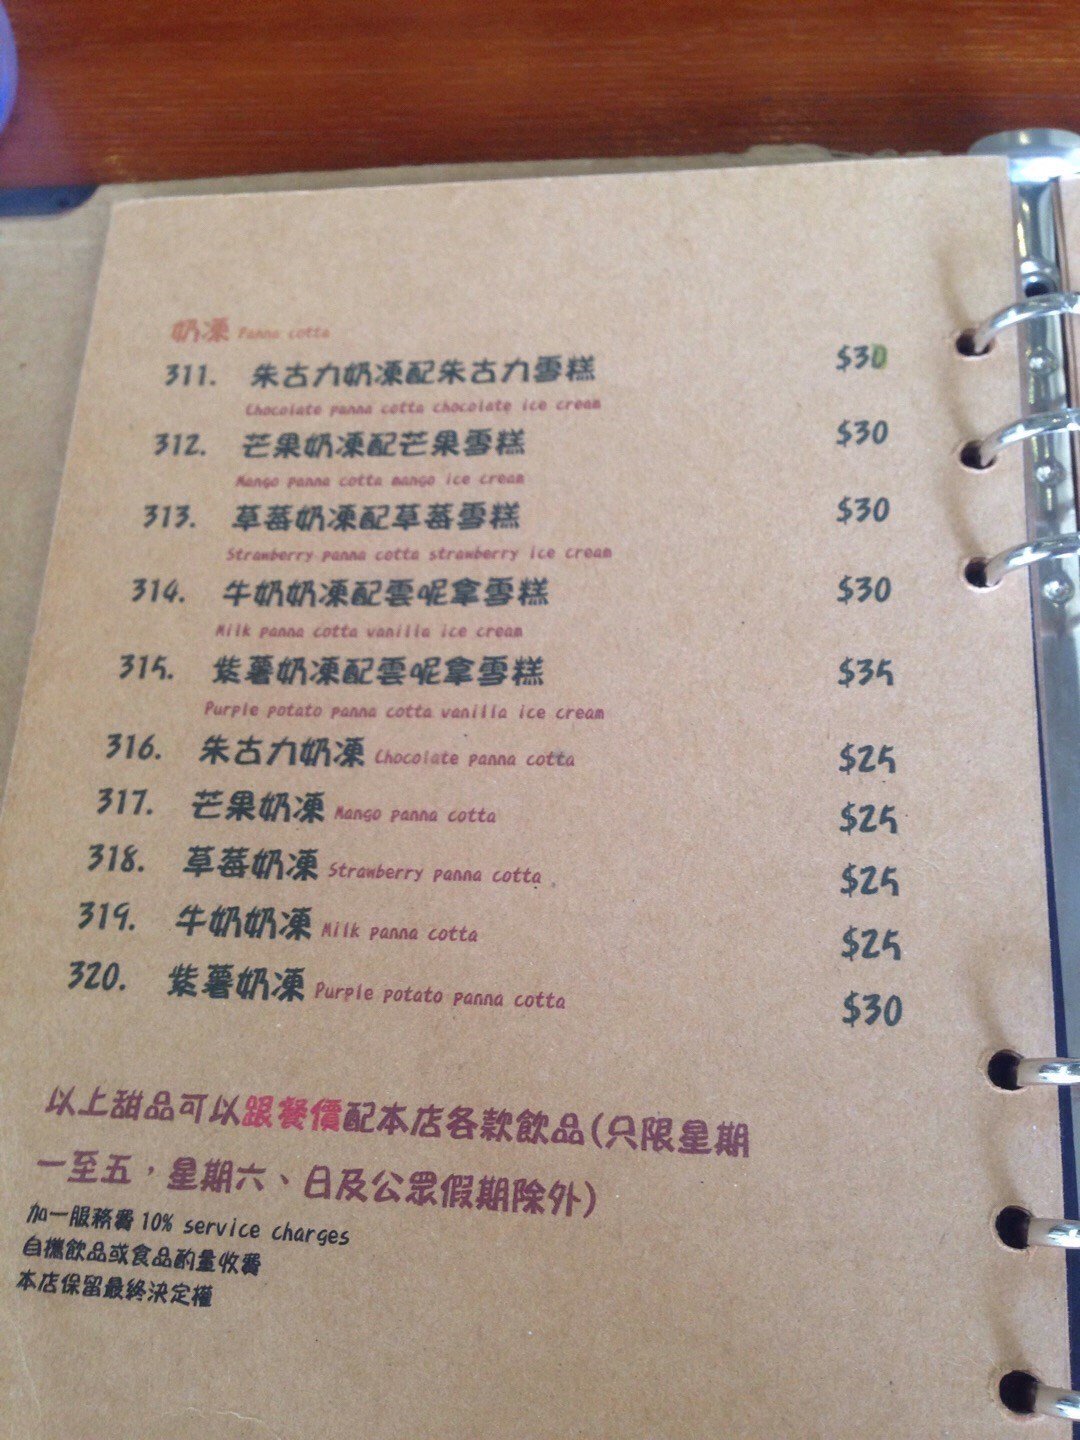 奶凍 Panna cotta
311. 朱古力奶凍配朱古力雪糕 $30
Chocolate panna cotta chocolate ice cream
312. 芒果奶凍配芒果雪糕 $30
Mango panna cotta mango ice cream
313. 草莓奶凍配草莓雪糕 $30
Strawberry panna cotta strawberry ice cream
314. 牛奶奶凍配雲呢拿雪糕 $30
Milk panna cotta vanilla ice cream
315. 紫薯奶凍配雲呢拿雪糕 $35
Purple potato panna cotta vanilla ice cream
316. 朱古力奶凍 Chocolate panna cotta $25
317. 芒果奶凍 Mango panna cotta $25
318. 草莓奶凍 Strawberry panna cotta $25
319. 牛奶奶凍 Milk panna cotta $25
320. 紫薯奶凍 Purple potato panna cotta $30
以上甜品可以跟餐價配本店各款飲品(只限星期
一至五，星期六、日及公眾假期除外)
加一服務費 10% service charges
自攜飲品或食品酌量收費
本店保留最終決定權